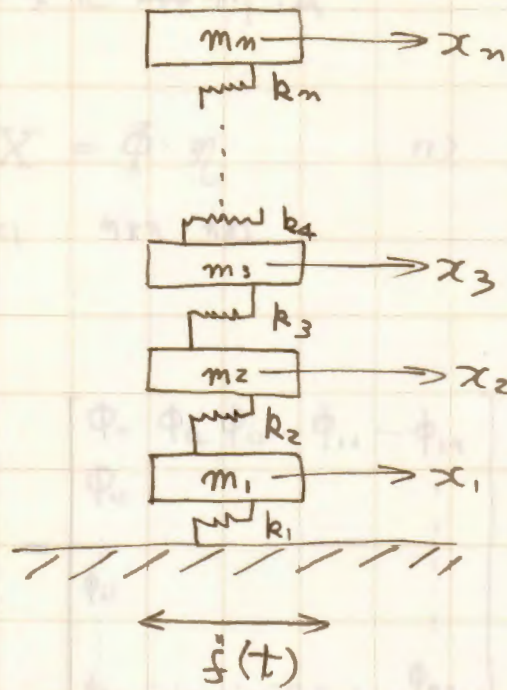 m_n x_n
k_n
k_4
m_3 x_3
k_3
m_2 x_2
k_2
m_1 x_1
k_1
f̈(t)